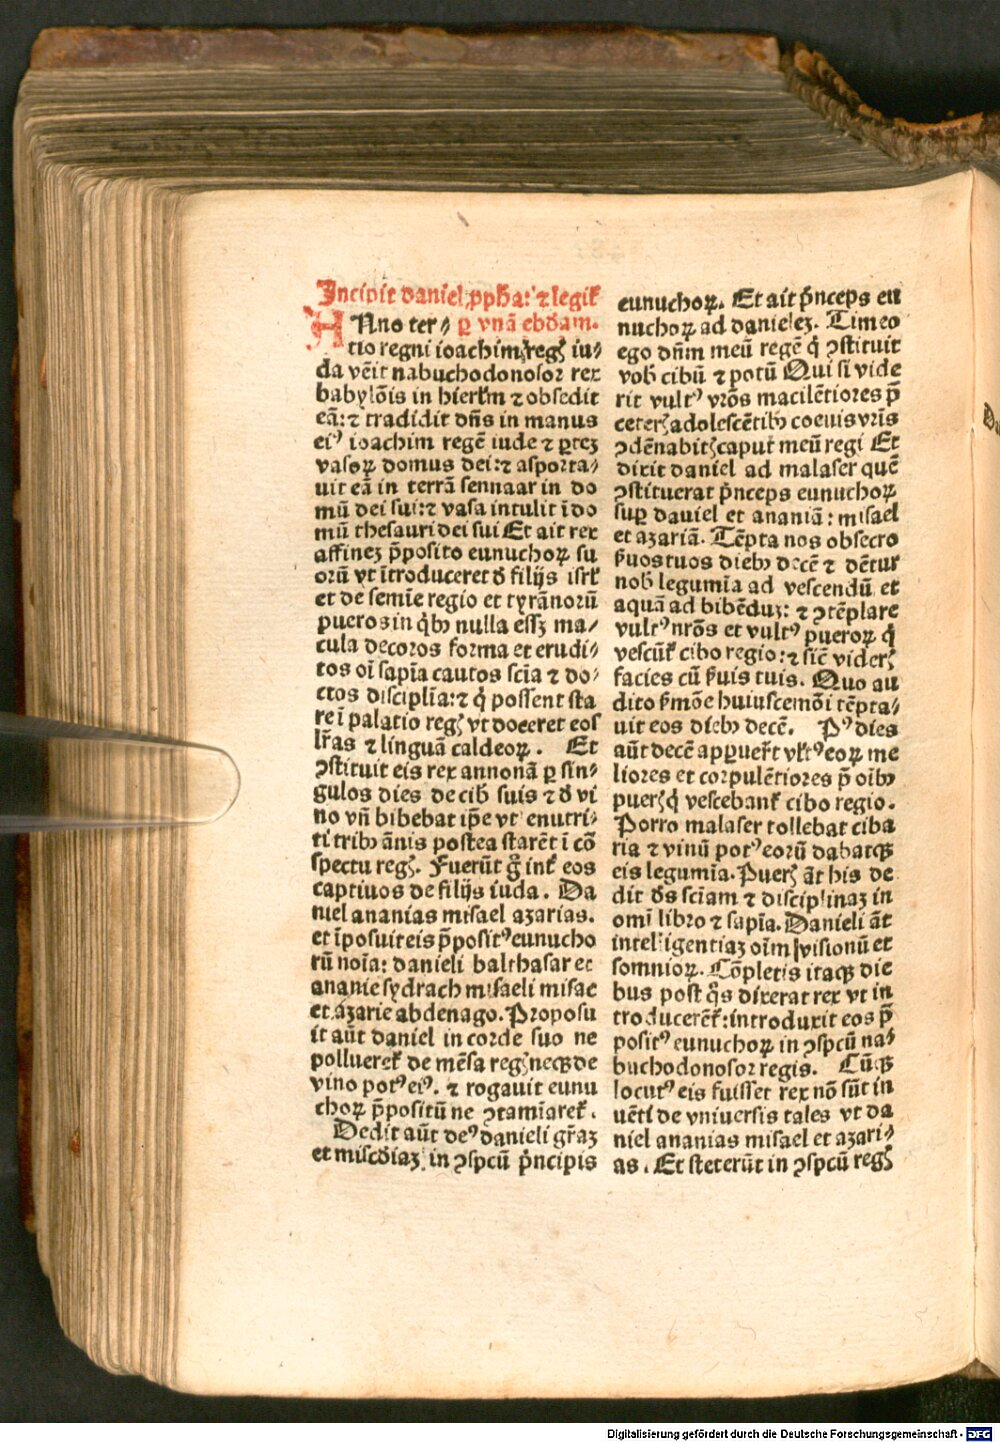 Incipit daniel ꝓpħa: ⁊ legiť
Anno ter⸗ ꝑ vnā ebďam.
tio regni ioachim regꝭ iu⸗
da vēit nabuchodonosor rex
babylōis in hierľm ⁊ obsedit
eā: ⁊ tradidit dn̄s in manus
eiꝰ ioachim regē iude ⁊ ꝑteꝫ
vasoꝝ domus dei: ⁊ asporta⸗
uit eā in terrā sennaar in do
mū dei sui: ⁊ vasa intulit ī do
mū thesauri dei sui Et ait rex
affineꝫ p̄posito eunuchoꝝ su
orū vt ītroduceret ď filijs isrľ
et de semīe regio et tyrānorū
pueros in q̇bꝰ nulla essꝫ ma⸗
cula decoros forma et erudi⸗
tos oī sapīa cautos scīa ⁊ do⸗
ctos disciplīa: ⁊ q̇ possent sta
re ī palatio regꝭ vt doceret eos
lr̄as ⁊ linguā caldeoꝝ. Et
ꝯstituit eis rex annonā ꝑ sin⸗
gulos dies de cib̄ suis ⁊ ď vi
no vn̄ bibebat ip̄e vt enutri⸗
ti tribꝰ ānis postea starēt ī cō
spectu regꝭ. Fuerūt g̊ int̄ eos
captiuos de filijs iuda. Da
niel ananias misael azarias.
et īposuit eis p̄positꝰ eunucho
rū noīa: danieli balthasar et
ananie sydrach misaeli misac
et azarie abdenago. Proposu
it aūt daniel in corde suo ne
pollueret̄ de mēsa regꝭ neqꝫ de
vino potꝰ eiꝰ. ⁊ rogauit eunu
choꝝ p̄positū ne ꝯtamīaret̄.
Dedit aūt deꝰ danieli gr̄aꝫ
et miscďiaꝫ in ꝯspcū p̓ncipis
eunuchoꝝ. Et ait p̓nceps eu
nuchoꝝ ad danieleꝫ. Timeo
ego dn̄m meū regē q̇ ꝯstituit
vob̄ cibū ⁊ potū Qui si vide
rit vultꝰ vr̄os macilētiores p̄
ceterꝭ adolescētibꝰ coeuis vr̄is
ꝯdēnabitꝭ caput meū regi Et
dixit daniel ad malaser quē
ꝯstituerat p̓nceps eunuchoꝝ
suꝑ dauiel et ananiā: misael
et azariā. Tēpta nos obsecro
ẜuos tuos diebꝰ decē ⁊ dētur
nob̄ legumīa ad vescendū et
aquā ad bibēduꝫ: ⁊ ꝯtēplare
vultꝰ nr̄os et vultꝰ pueroꝝ q̇
vescūt̄ cibo regio: ⁊ sic̄ viderꝭ
facies cū ẜuis tuis. Quo au
dito ẜmōe huiuscemōi tēpta⸗
uit eos diebꝰ decē. Pꝰ dies
aūt decē apꝑuer̄t vl̄tꝰ eoꝝ me
liores et corpulētiores p̄ oībꝰ
puerꝭ q̇ vescebant̄ cibo regio.
Porro malaser tollebat ciba
ria ⁊ vinū potꝰ eorū dabatqꝫ
eis legumīa. Puerꝭ āt his de
dit ďs scīam ⁊ disciplinaꝫ in
omī libro ⁊ sapīa. Danieli āt
intelligentiaꝫ oīm visionū et
somnioꝝ. Cōpletis itaqꝫ die
bus post q̄s dixerat rex vt in
troducerēt̄: introduxit eos p̄
positꝰ eunuchoꝝ in ꝯspcū na⸗
buchodonosor regis. Cūqꝫ
locutꝰ eis fuisset rex nō sūt in
uēti de vniuersis tales vt da
niel ananias misael et azari⸗
as. Et steterūt in ꝯspcū regꝭ
Digitalisierung gefördert durch die Deutsche Forschungsgemeinschaft - DFG